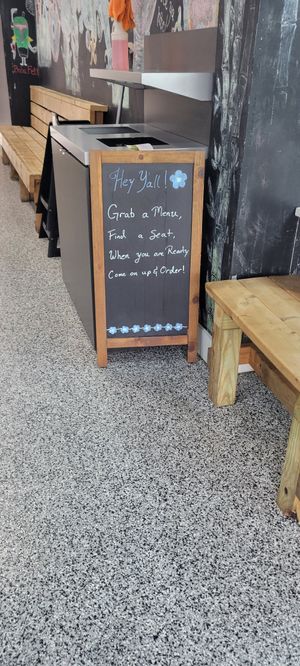 Hey Yall!
Grab a Menu,
Find a Seat,
When you are Ready
Come on up & Order!